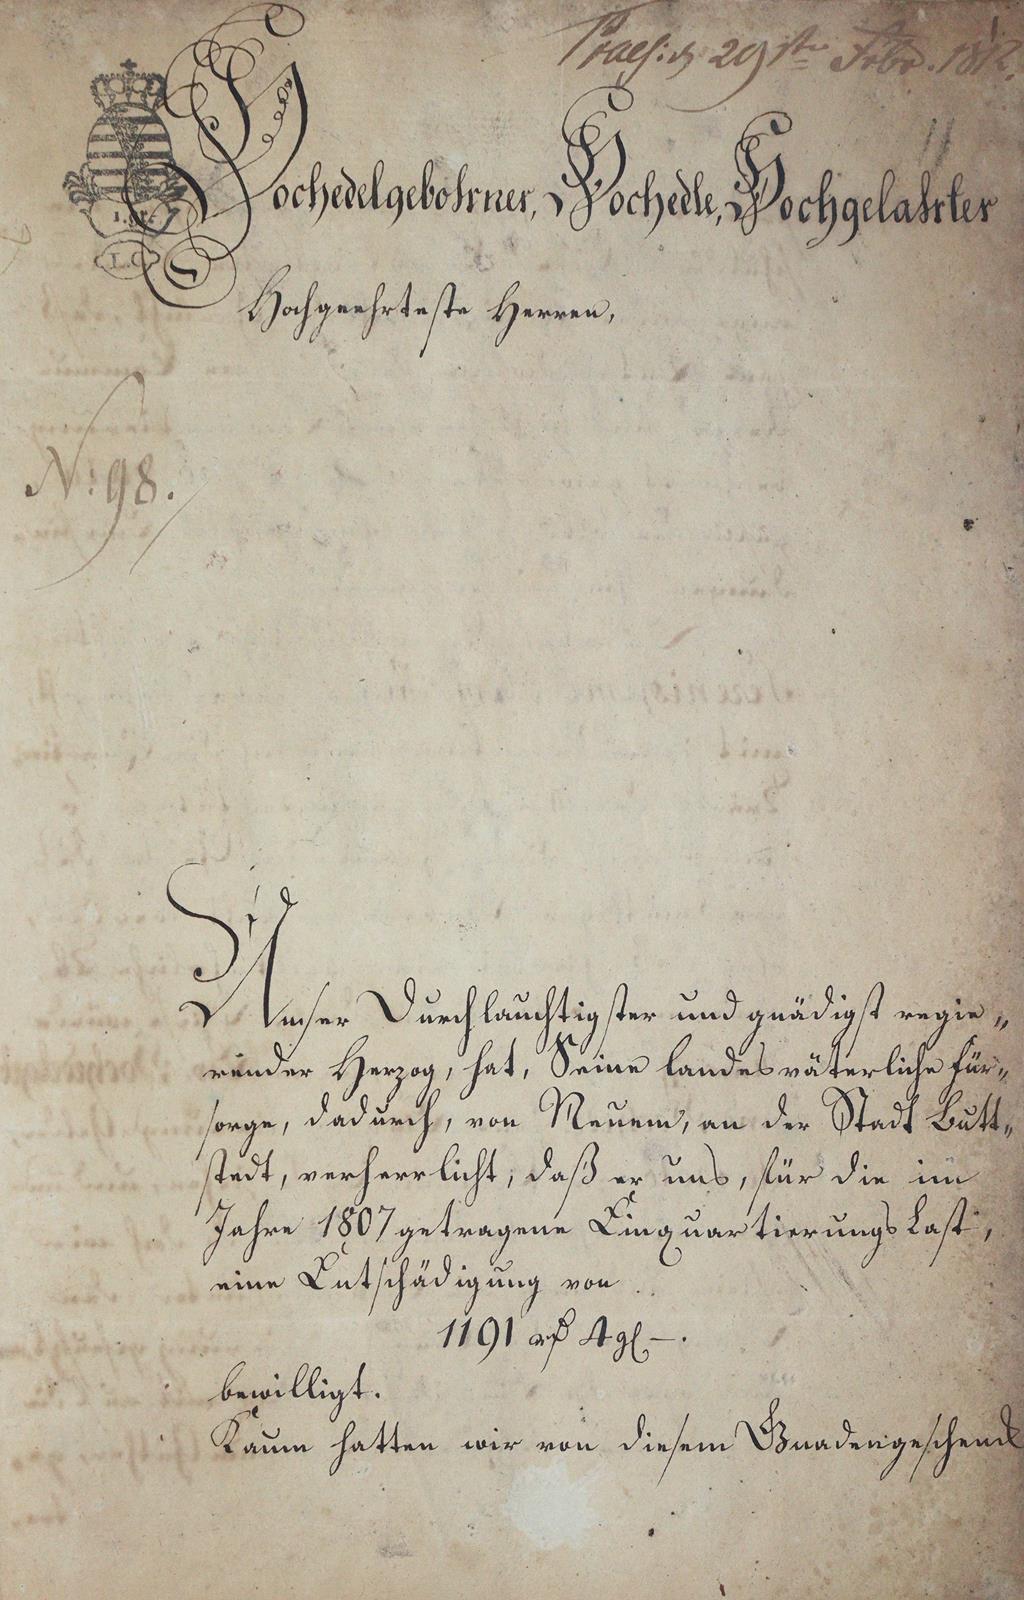 Praes: d. 29ste Febr. 1812.
11
Hochedelgebohrner, Hochedle, Hochgelahrter
Hochgeehrteste Herren,
N: 98.
Unser Durchlauchtigster und gnädigst regie„
render Herzog, hat, Seine landesväterliche Für„
sorge, dadurch, von Neuem, an der Stadt Butt„
stedt, verherrlicht, daß er uns, für die im
Jahre 1807 getragene Einquartierungs Last,
eine Entschädigung von
1191 rf 4 gl —.
bewilligt.
Kaum hatten wir von diesem Gnadengeschenk